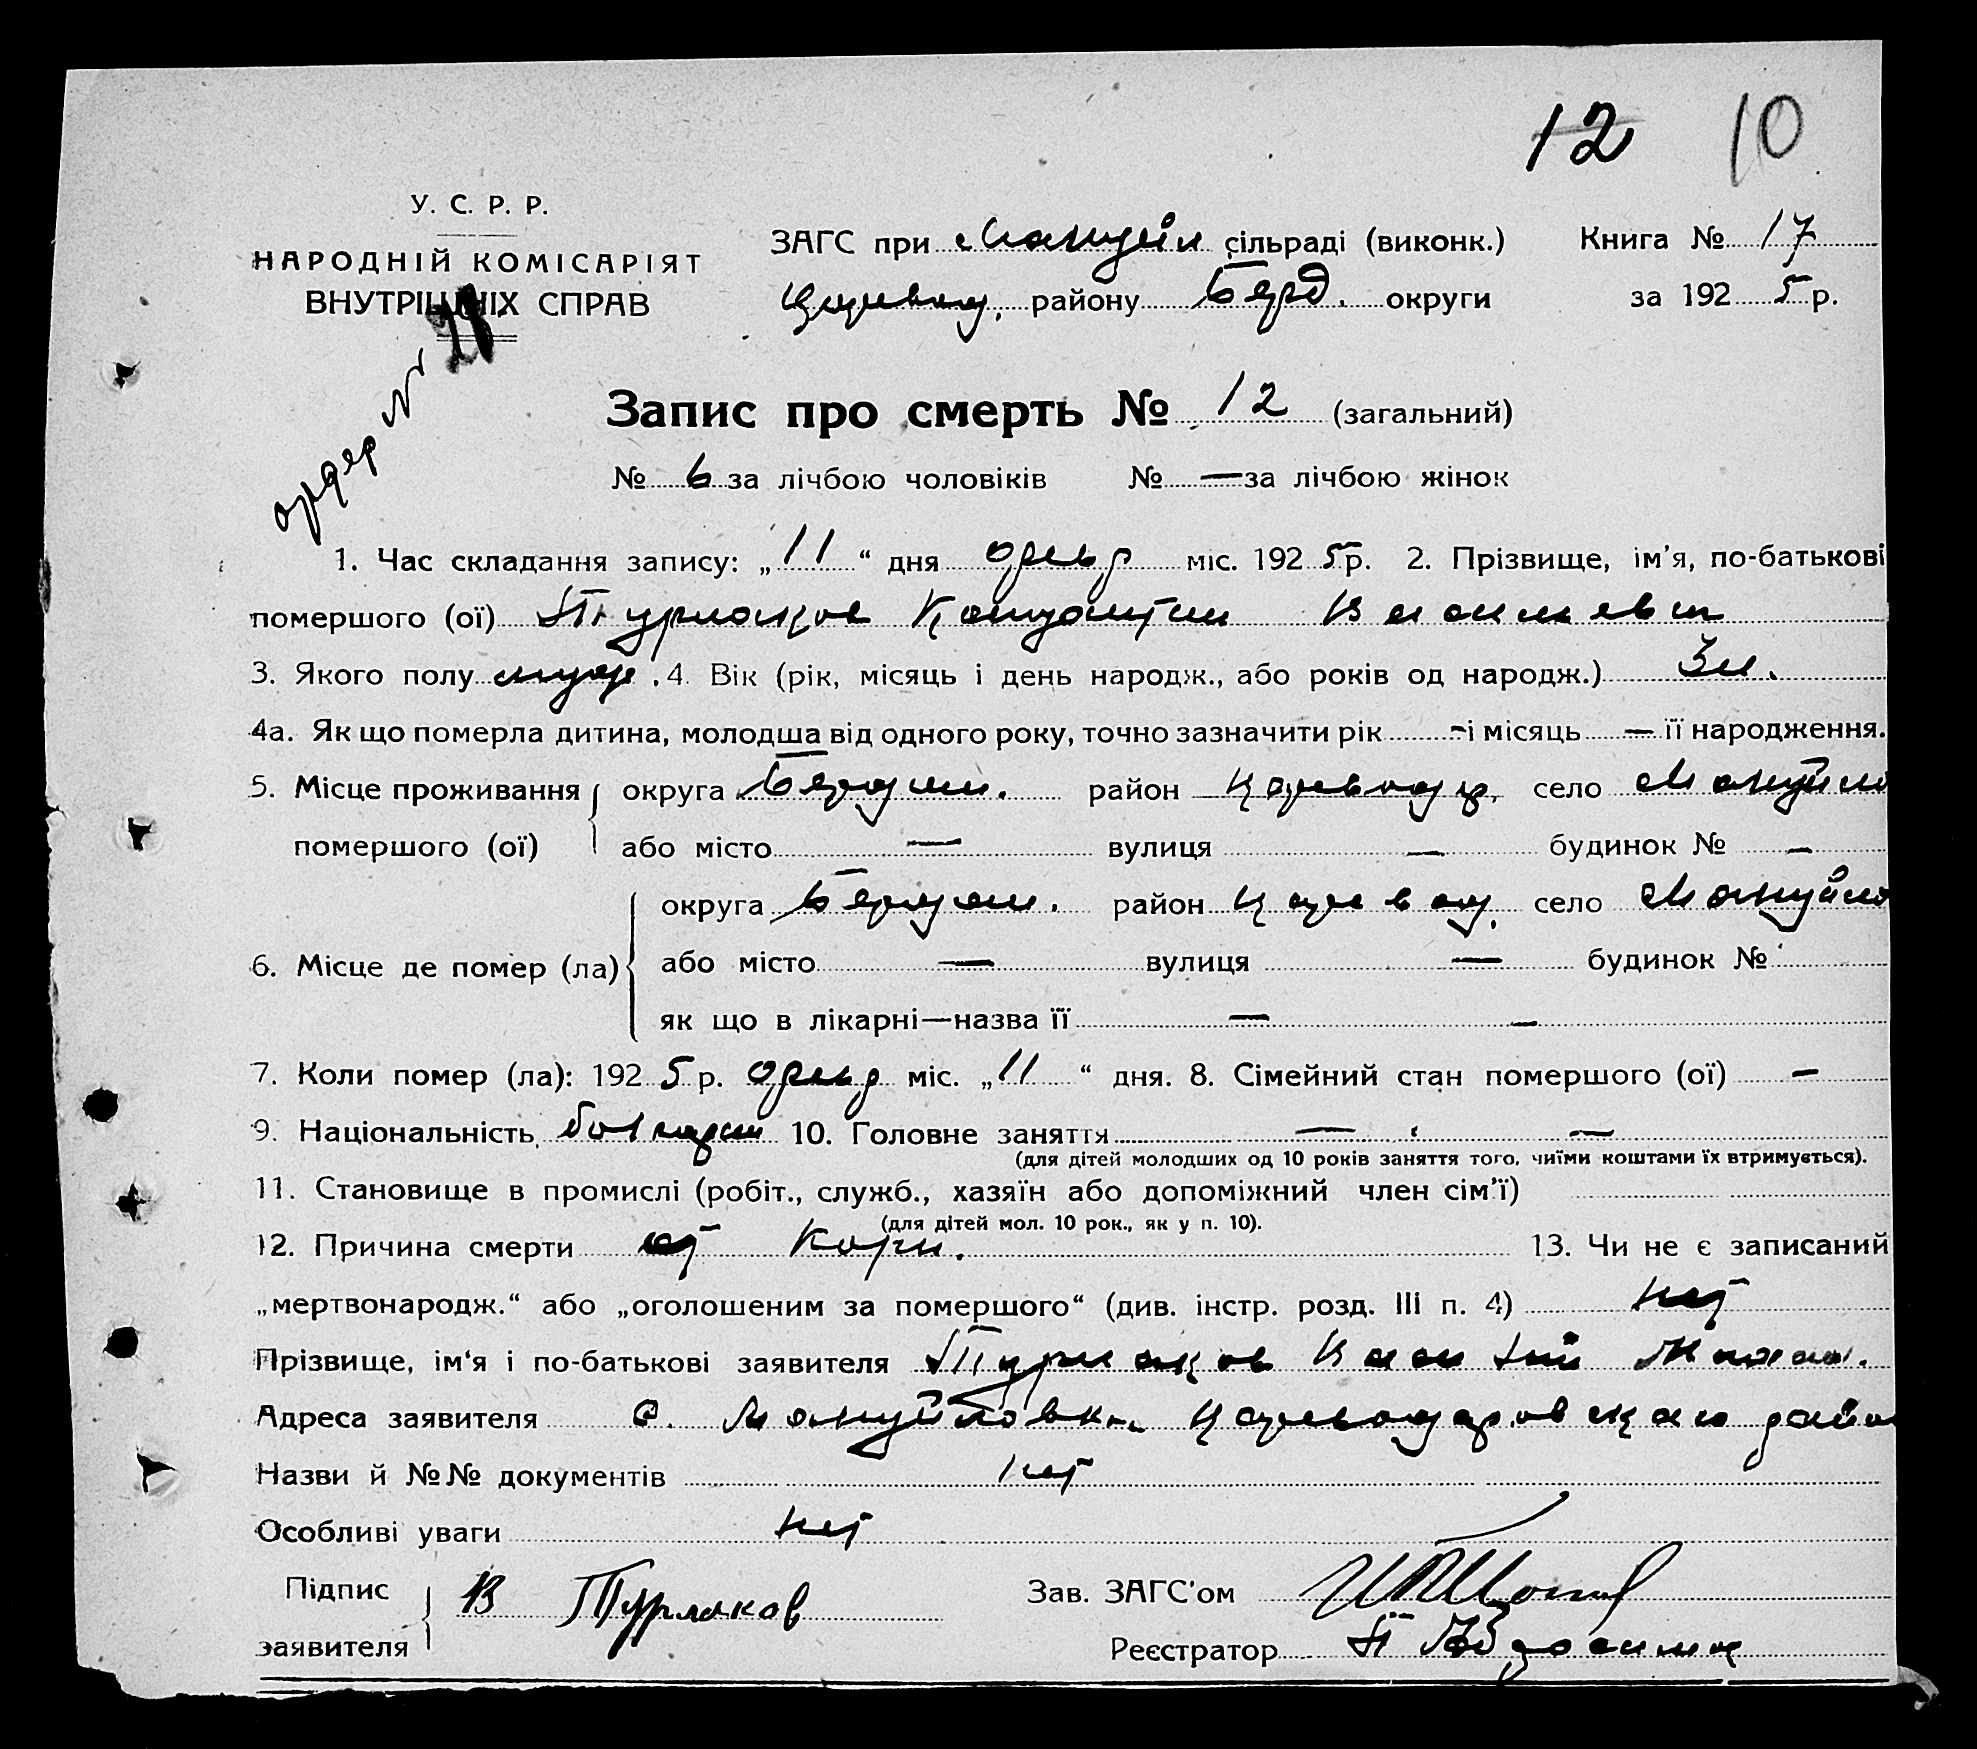 12 10
У. С. Р. Р.
НАРОДНІЙ КОМІСАРІЯТ
ВНУТРІШНІХ СПРАВ
ЗАГС при Мануйл сільраді (виконк.) Книга № 17
Царевод. району Берд. округи за 1925 р.
ордер №
Запис про смерть № 12 (загальний)
№ 6 за лічбою чоловіків № — за лічбою жінок
1. Час складання запису: „11“ дня міс. 1925 р. 2. Прізвище, ім’я, по-батькові
помершого (ої) Турлаков Константин Васильевич
3. Якого полу муж. 4. Вік (рік, місяць і день народж., або років од народж.) 3 м.
4а. Як що померла дитина, молодша від одного року, точно зазначити рік - і місяць — її народження.
5. Місце проживання округа Бердян. район Цареводар. село Мануйло
помершого (ої) або місто — вулиця — будинок № -
6. Місце де помер (ла) округа Бердян. район Царевод. село Мануйло
або місто — вулиця — будинок №
як що в лікарні—назва її — -
7. Коли помер (ла): 1925 р. міс. „11“ дня. 8. Сімейний стан помершого (ої) -
9. Національність болгарин 10. Головне заняття — —
(для дітей молодших од 10 років заняття того, чиїми коштами їх втримується).
11. Становище в промислі (робіт., служб., хазяїн або допоміжний член сім’ї)
(для дітей мол. 10 рок., як у п. 10).
12. Причина смерти от Кори. 13. Чи не є записаний
„мертвонародж.“ або „оголошеним за помершого“ (див. інстр. розд. III п. 4) нет
Прізвище, ім‘я і по-батькові заявителя Турлаков
Адреса заявителя с. Мануйловка Цареводаровского райо
Назви й №№ документів нет
Особливі уваги нет
Підпис заявителя В Турлаков Зав. ЗАГС’ом
Реєстратор